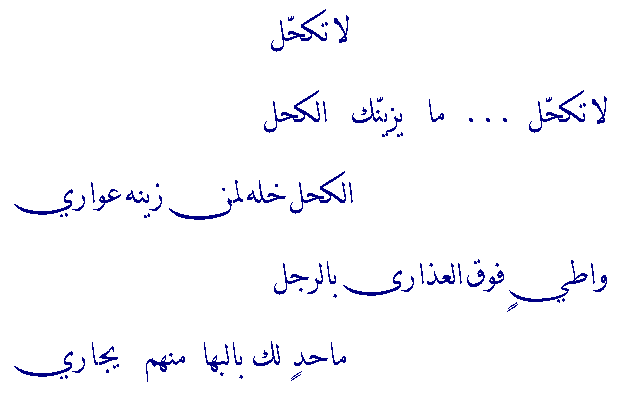 لا تكحّل
لا تكحّل ... ما يزينّك الكحل
الكحل خله لمن زينه عواري
واطيٍ فوق العذارى بالرجل
ماحدٍ لك بالبها منهم يجاري